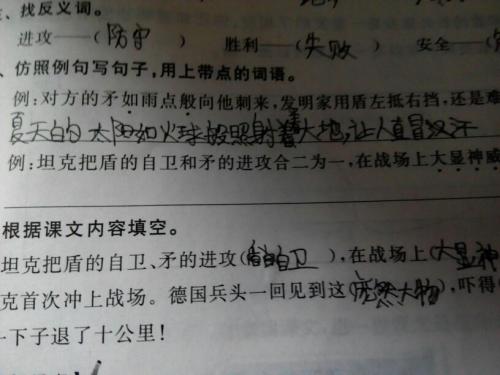 、找反义词。
进攻——（防守） 胜利（失败） 安全（
、仿照例句写句子，用上带点的词语。
例：对方的矛如雨点般向他刺来，发明家用盾左抵右挡，还是难
夏天的太阳如火球般照射着大地，让人直冒汗
例：坦克把盾的自卫和矛的进攻合二为一，在战场上大显神威
根据课文内容填空。
坦克把盾的自卫、矛的进攻（自卫），在战场上（大显神
克首次冲上战场。德国兵头一回见到这（庞然大物），吓得
一下子退了十公里！